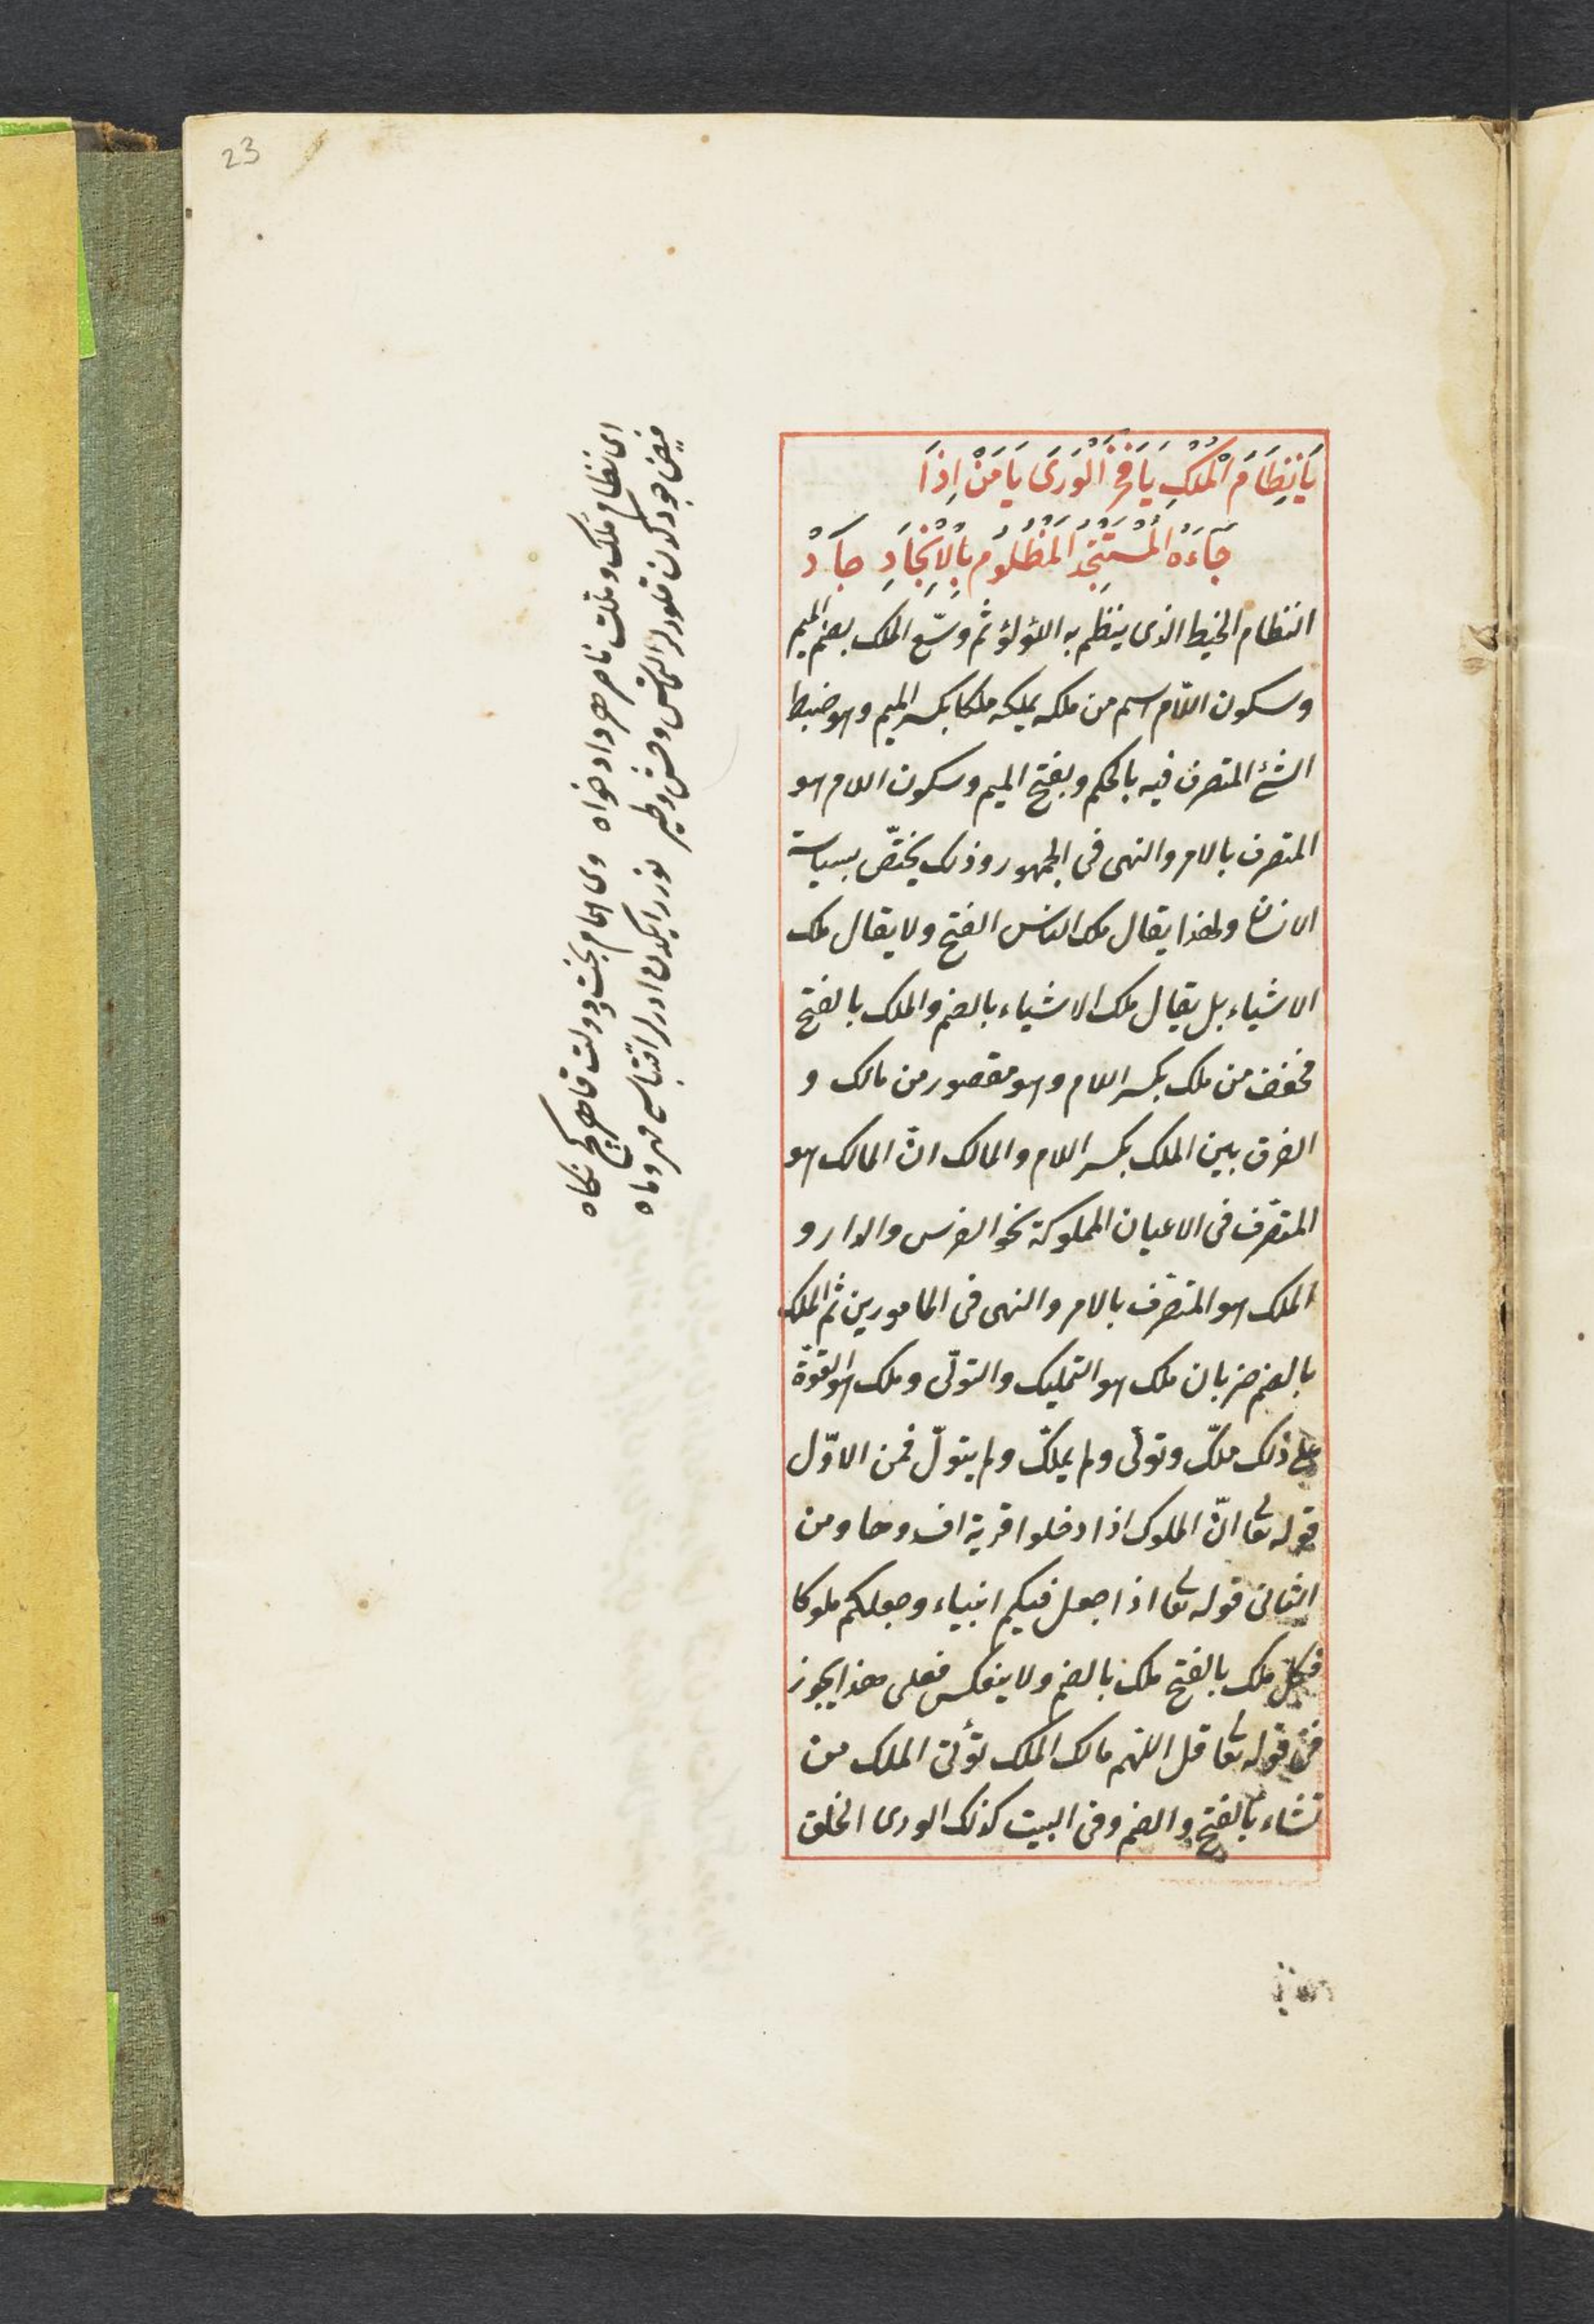 23
يَا نِظَامَ الْمُلْكِ يَا فَخْرَ الْوَرَى يَا مَنْ اِذَا
جَاءَهُ الْمُسْتَنْجِدُ الْمَظْلُومُ بِالْاِنْجَادِ جَادْ
النظام الخيط الذى ينظم به اللؤلؤ ثم وسّع الملك بضم الميم
وسكون اللام اسم من ملكه يملكه ملكا بكسر الميم وهو ضبط
الشئ المتصرف فيه بالحكم وبفتح الميم وسكون اللام هو
المتصرف بالامر والنهى فى الجمهور وذلك يختصّ بسياسة
الانسان ولهذا يقال ملك الناس الفتح ولا يقال ملك
الاشياء بل يقال ملك الاشياء بالضم والملك بالفتح
مخفف من ملك بكسر اللام وهو مقصور من مالك و
الفرق بين الملك بكسر اللام والمالك انّ المالك هو
المتصرّف فى الاعيان المملوكة نحو الفرس والدار و
الملك هو المتصرّف بالامر والنهى فى المامورين ثم الملك
بالضم ضربان ملك هو التمليك والتولّى وملك هو القوّة
على ذلك ملّك وتولّى ولم يملّك ولم يتولّ فمن الاوّل
قوله تعا انّ الملوك اذا دخلوا قرية افسدوها ومن
الثانى قوله تعا اذا جعل فيكم انبياء وجعلكم ملوكا
فكلّ ملك بالفتح ملك بالضم ولا ينعكس فعلى هذا يجوز
فى قوله تعا قل اللهم مالك الملك تؤتى الملك من
تشاء بالفتح والضم وفى البيت كذلك الورى الخلق
اى نظام ملك وملت ناصر هر دادخواه وى امام بخت ودولت قاهر هر كج نكاه
فيض جودكدن قلورلر التماس وحش وطير نور رايكدن ايدرلر اقتباس مهر وماه